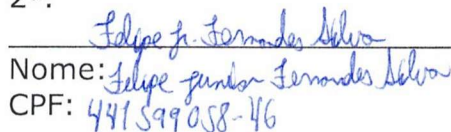 2ª.
Felipe Jr. Fernandes Silva
Nome: Felipe Junior Fernandes Silva
CPF: 441599058-46